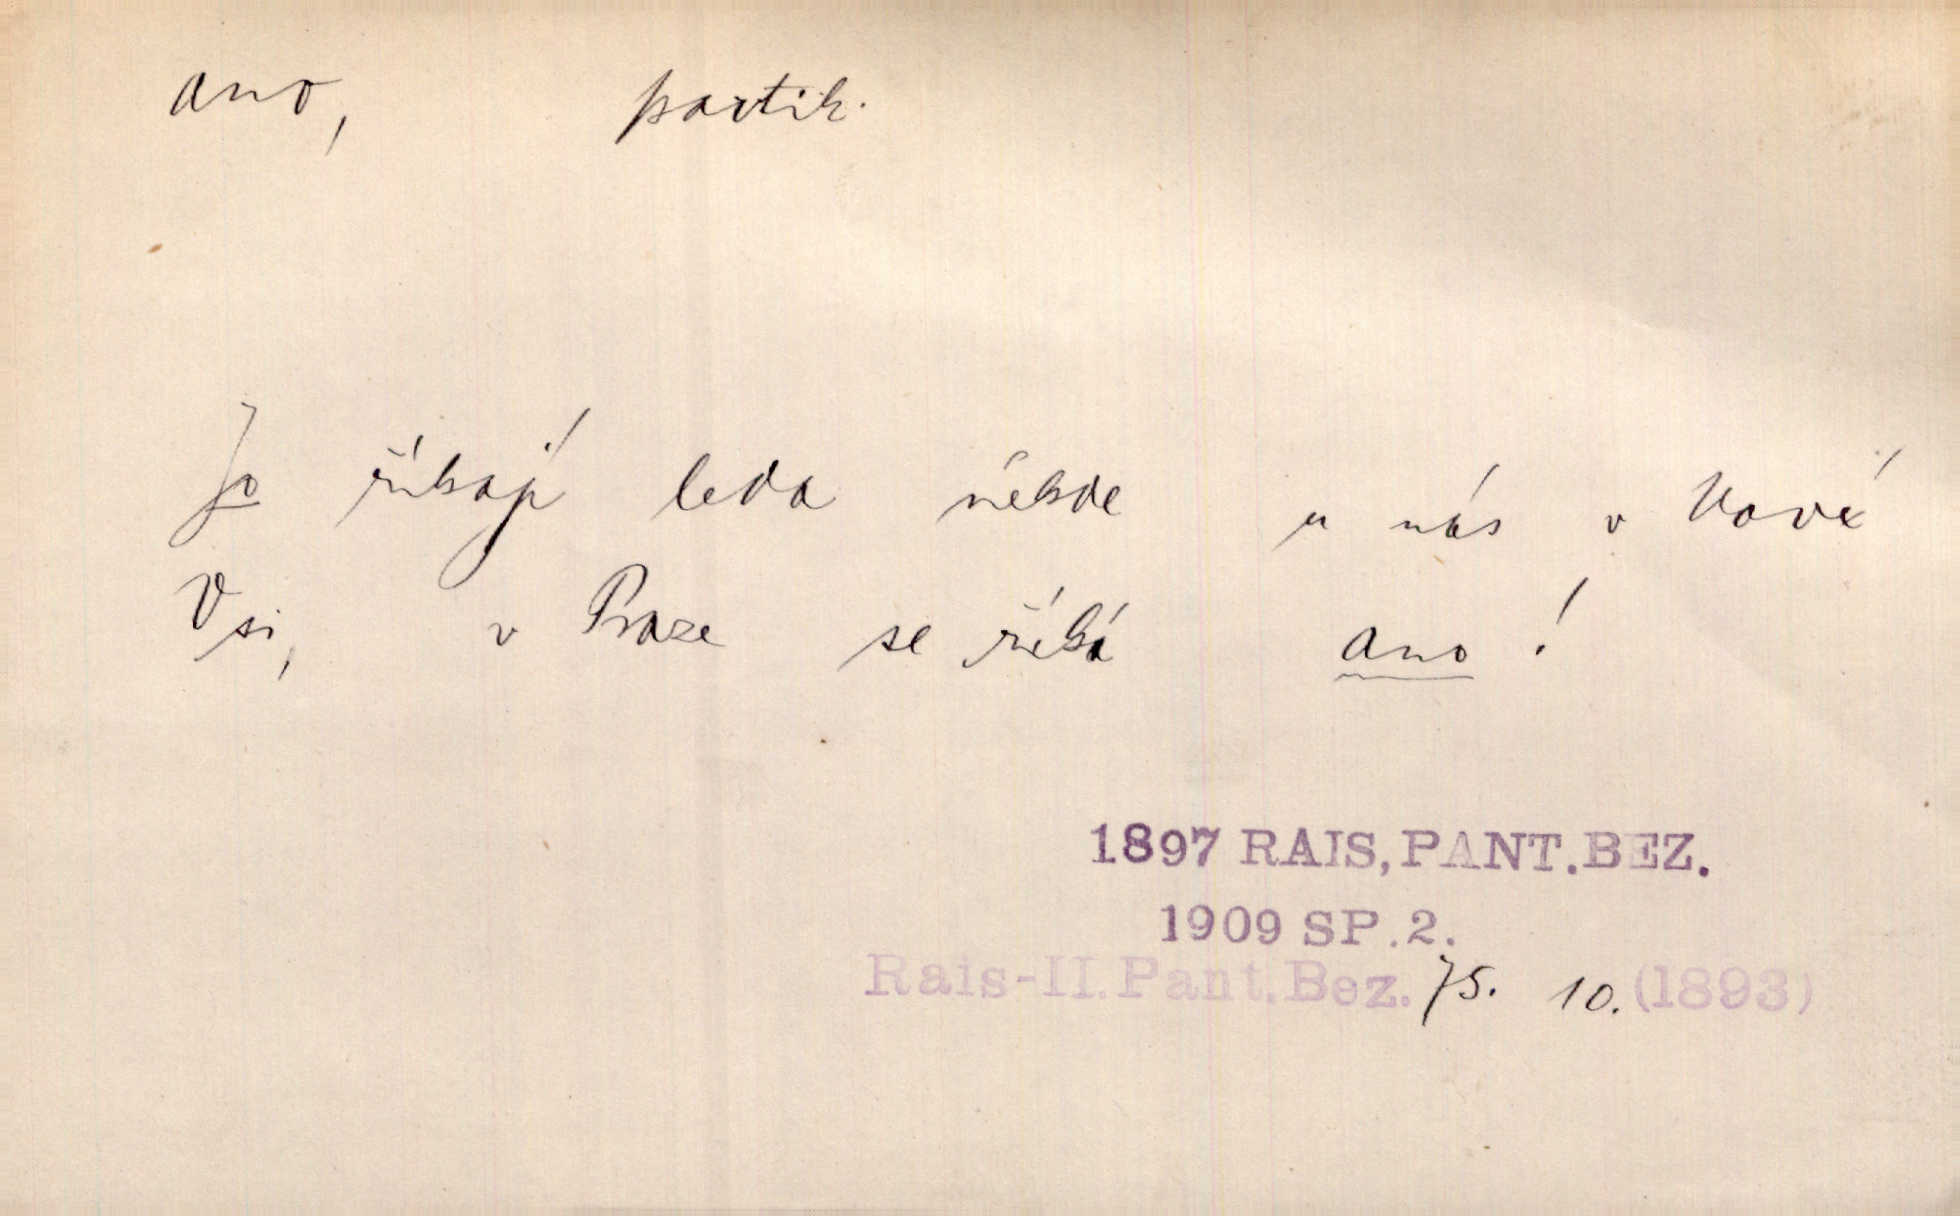 ano, partik.
Jo říkají leda někde u nás v Nové
Vsi, v Praze se říká ano!
1897 RAIS, PANT.BEZ.
1909 SP.2.
Rais-II.Pant.Bez. 75. 10. (1893)